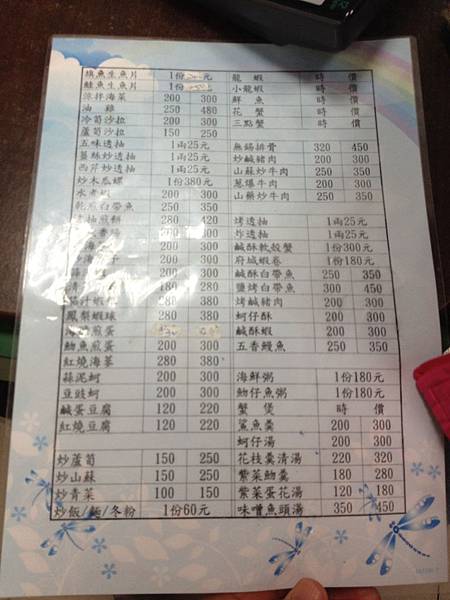 旗魚生魚片 1份 元
鮭魚生魚片 1份 元
涼拌海菜 200 300
油雞 250 480
冷筍沙拉 200 300
蘆筍沙拉 150 250
五味透抽 1兩25元
薑絲炒透抽 1兩25元
西芹炒透抽 1兩25元
炒木瓜螺 1份380元
水煮蝦 200 300
乾煎白帶魚 250 350
透抽煎餅 280 420
200 300
200 300
200 300
200 300
280 380
280 380
鳳梨蝦球 280 380
煎蛋
魩魚煎蛋 200 300
紅燒海蔘 280 380
蒜泥蚵 200 300
豆豉蚵 200 300
鹹蛋豆腐 120 220
紅燒豆腐 120 220
炒蘆筍 150 250
炒山蘇 150 250
炒青菜 100 150
炒飯/麵/冬粉 1份60元
龍蝦 時價
小龍蝦 時價
鮮魚 時價
花蟹 時價
三點蟹 時價
無錫排骨 320 450
炒鹹豬肉 200 300
山蘇炒牛肉 250 350
蔥爆牛肉 200 300
山藥炒牛肉 250 350
烤透抽 1兩25元
炸透抽 1兩25元
鹹酥軟殼蟹 1份300元
府城蝦卷 1份180元
鹹酥白帶魚 250 350
鹽烤白帶魚 300 450
烤鹹豬肉 200 300
蚵仔酥 200 300
鹹酥蝦 200 300
五香鰻魚 250 350
海鮮粥 1份180元
魩仔魚粥 1份180元
蟹煲 時價
鯊魚羹 200 300
蚵仔湯 200 300
花枝羹清湯 220 320
紫菜魩羹 180 280
紫菜蛋花湯 120 180
味噌魚頭湯 350 450